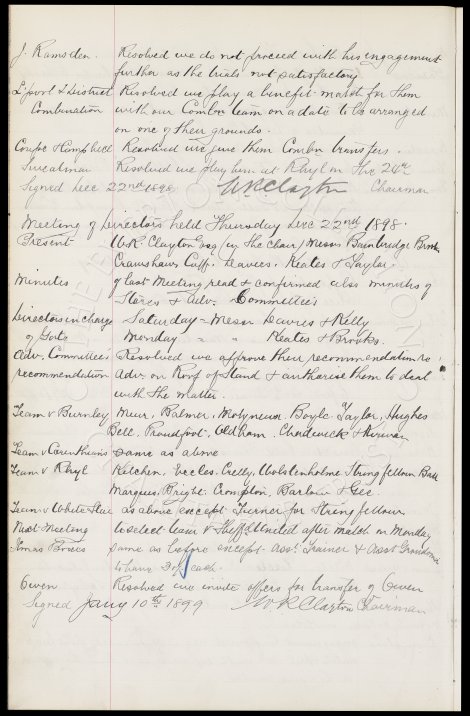 J. Ramsden. Resolved we do not proceed with his engagement
further as the trials not satisfactory
L'pool & District Resolved we play a benefit match for them
Combination with our Combn team on a date to be arranged
on one of their grounds.
Coupe & Campbell Resolved we give them Combn transfers.
Sweatman Resolved we play him at Rhyl on the 24th
Signed Dec 22nd 1898 W R Clayton Chairman
Meeting of Directors held Thursday Dec 22nd 1898.
Present W.R. Clayton Esq (in the chair) Messrs Bainbridge Brooks
Crawshaw Cuff. Davies. Keates & Taylor.
Minutes of last Meeting read & confirmed also minutes of
Stores & Adv. Committees
Directors in charge Saturday = Messrs Davies & Kelly
of Gate Monday = " Keates & Brooks.
Adv. Committees Resolved we approve their recommendation re
recommendation Adv. on Roof of Stand & authorise them to deal
with the matter.
Team v Burnley Muir. Balmer. Molyneux. Boyle. Taylor, Hughes
Bell. Proudfoot. Oldham. Chadwick & Kirwan
Team v Corinthians same as above
Team v Rhyl Kitchen. Eccles. Crelly. Wolstenholme Stringfellow Barr
Marquis. Bright. Crompton. Barlow & Gee.
Team v White Star as above except Turner for Stringfellow.
Next Meeting to select team v Sheff. United after match on Monday
Xmas Boxes same as before except Asst. Trainer & Asst Groundsman
to have 20/- each.
Owen Resolved we invite offers for transfer of Owen
Signed Jany 10th 1899 W R Clayton Chairman